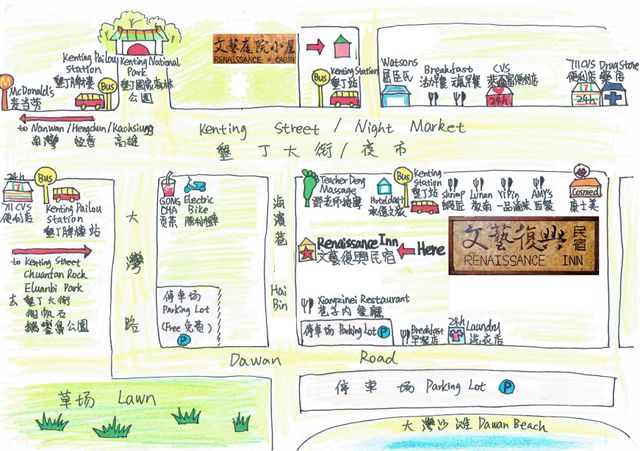 McDonald's
麦当劳
Kenting Pailou
Station
墾丁牌樓
Bus
Kenting National
Park
墾丁國家森林
公園
文藝庭院小屋
RENAISSANCE CABIN
Bus
Kenting Station
墾丁站
Watsons
屈臣氏
Breakfast
CVS
24h
711 CVS
便利店
24h
Drug Store
藥店
to Nanwan/Hengchun/Kaohsiung
南灣 恆春 高雄
Kenting Street / Night Market
墾丁大街/夜市
24h
711 CVS
便利店
Bus
Kenting Pailou
Station
墾丁牌樓站
to Kenting Street
Chuanfan Rock
Eluanbi Park
去 墾丁大街
船帆石
鵝鑾鼻公園
大
灣
路
GONG
CHA
贡茶
Electric
Bike
停車场
Parking Lot
(Free 免費)
P
海濱巷
Hai
Bin
Teacher Deng
Massage
鄧老師按摩
Hotel dart
Bus
Kenting
Station
墾丁站
shrimp
Lunan
YiPin
AMY'S
Cosmed
康士美
Renaissance Inn
文藝復興民宿
Here
文藝復興 民宿
RENAISSANCE INN
Xiangzinei Restaurant
巷子内餐廳
停車场 Parking Lot
P
Breakfast
早餐店
24h
Laundry
洗衣店
Dawan Road
草场 Lawn
停車场 Parking Lot
P
大灣沙滩 Dawan Beach